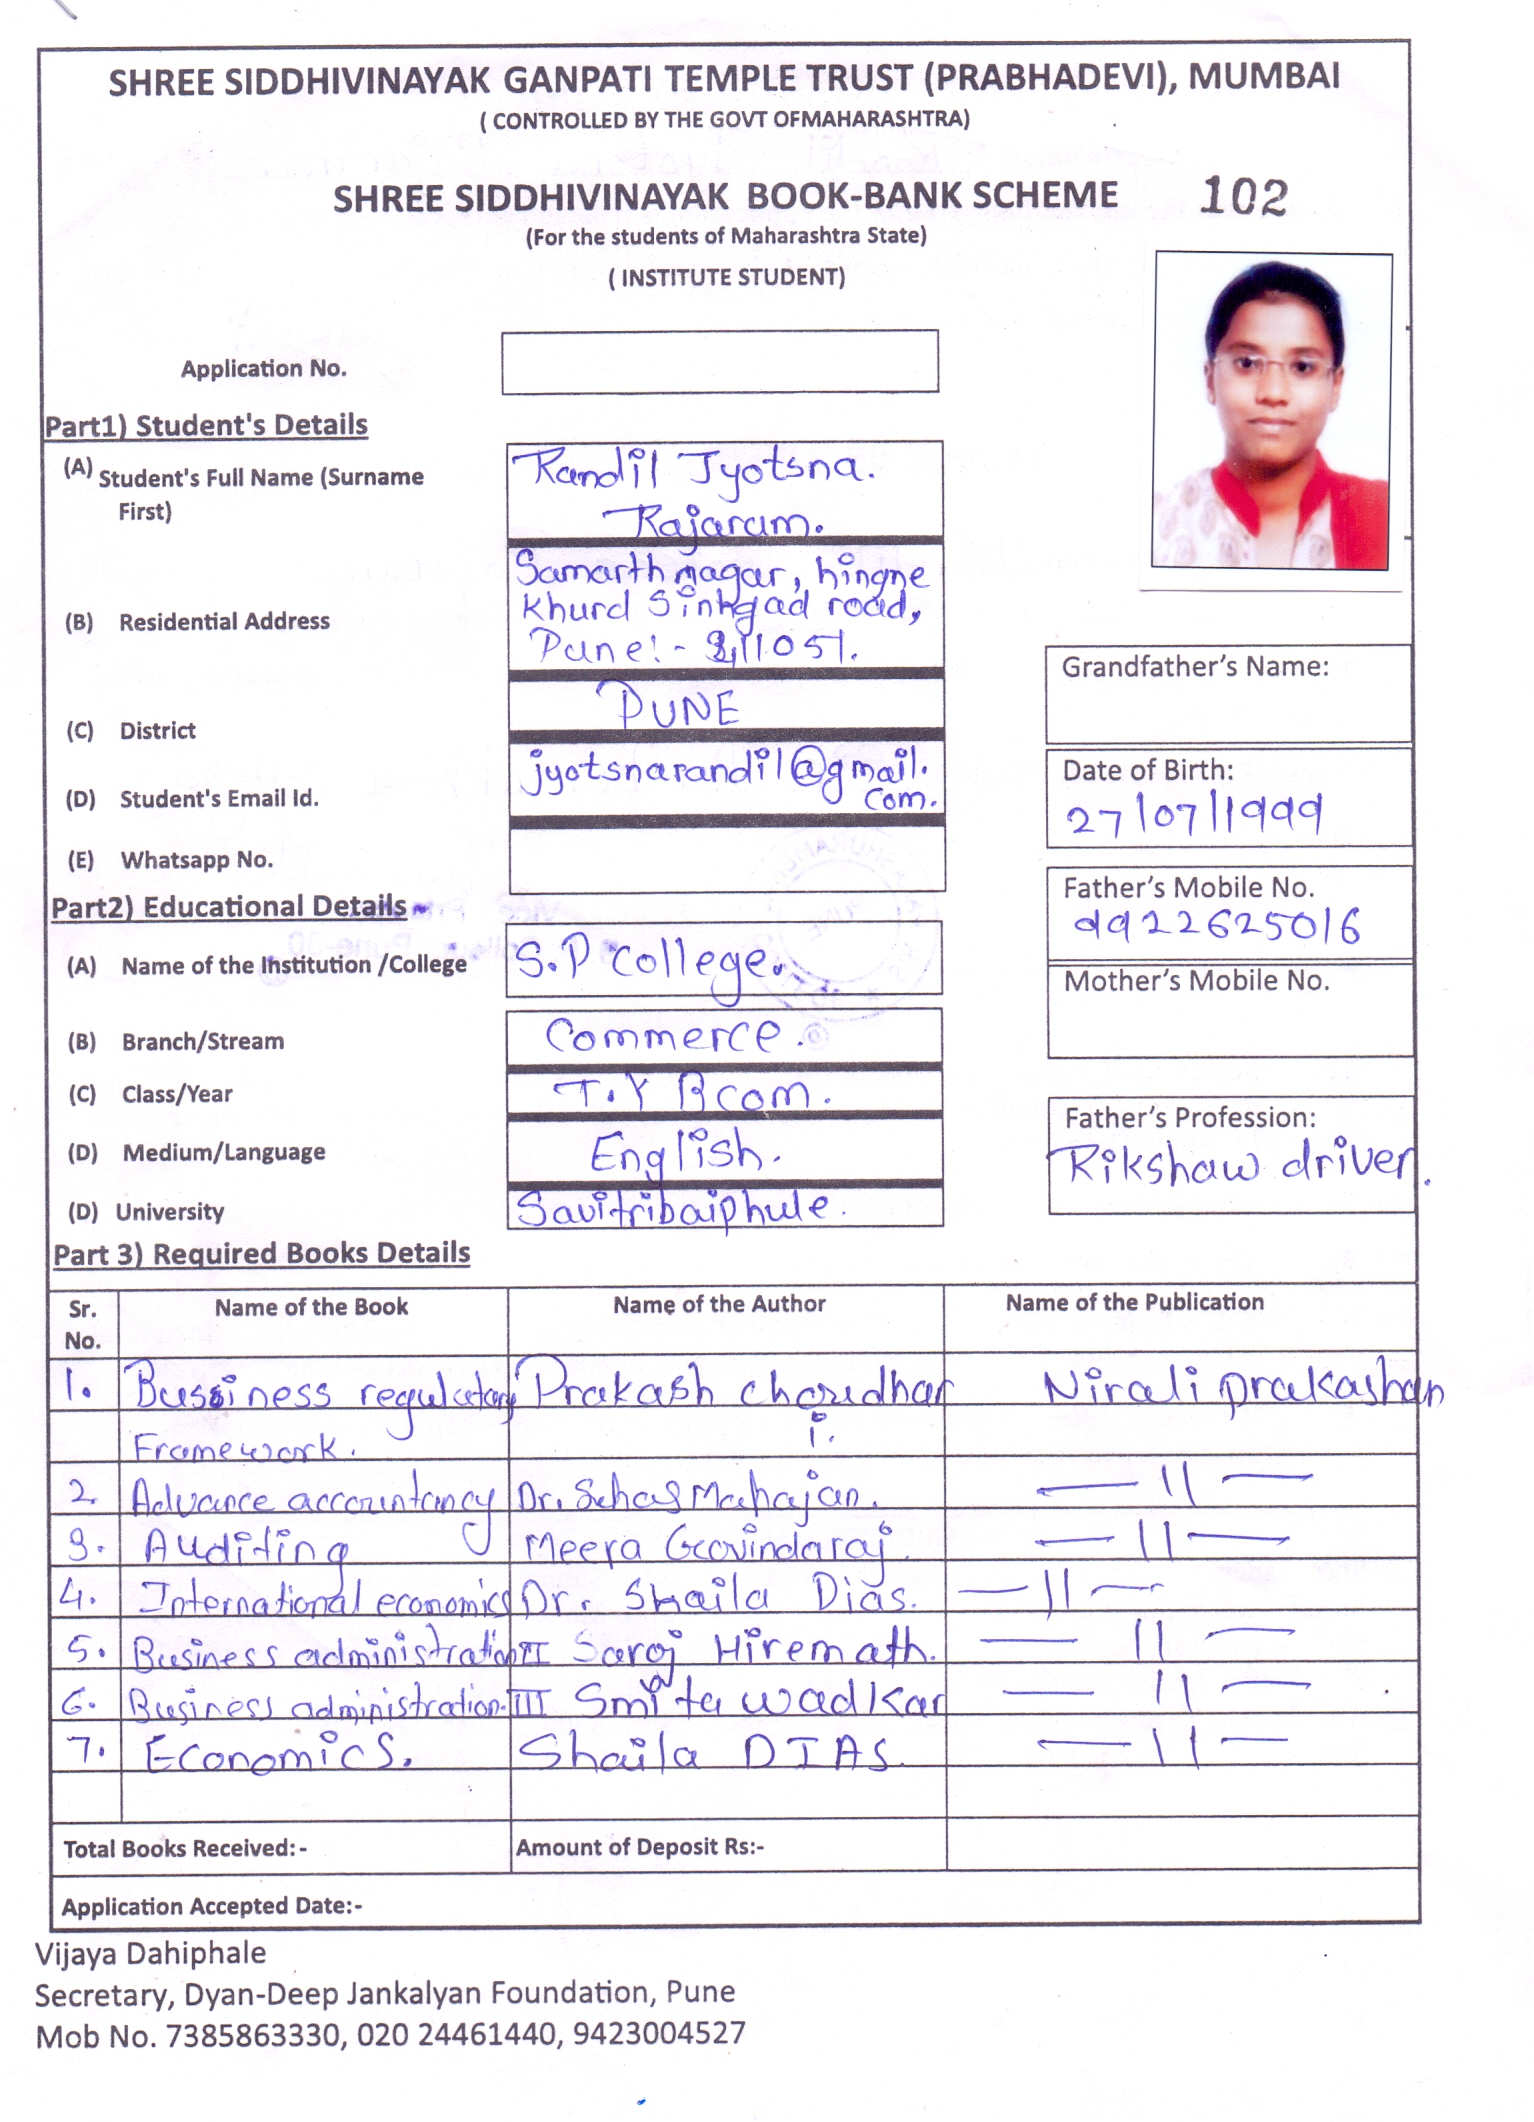 SHREE SIDDHIVINAYAK GANPATI TEMPLE TRUST (PRABHADEVI), MUMBAI
( CONTROLLED BY THE GOVT OFMAHARASHTRA)
SHREE SIDDHIVINAYAK BOOK-BANK SCHEME 102
(For the students of Maharashtra State)
( INSTITUTE STUDENT)
Application No.
Part1) Student's Details
(A) Student's Full Name (Surname
First)
Randil Jyotsna.
Rajaram.
(B) Residential Address
Samarth nagar, hingne
khurd Sinhgad road,
Pune:- 411051.
(C) District PUNE
(D) Student's Email Id. jyotsnarandil@gmail.
com.
(E) Whatsapp No.
Grandfather's Name:
Date of Birth:
27/07/1999
Father's Mobile No.
9922625016
Mother's Mobile No.
Father's Profession:
Rikshaw driver.
Part2) Educational Details
(A) Name of the Institution /College S.P College.
(B) Branch/Stream Commerce.
(C) Class/Year T.Y Bcom.
(D) Medium/Language English.
(D) University Savitribaiphule.
Part 3) Required Books Details
Sr. Name of the Book Name of the Author Name of the Publication
No.
1. Bussiness regulatory Prakash choudhar Nirali prakashan
Framework. i.
2. Advance accountancy Dr. Suhas Mahajan. — 11 —
3. Auditing Meera Govindaraj. — 11 —
4. International economics Dr. Shaila Dias. — 11 —
5. Business administration II Saroj Hiremath. — 11 —
6. Business administration. III Smita wadkar — 11 —
7. Economics. Shaila DIAS. — 11 —
Total Books Received:- Amount of Deposit Rs:-
Application Accepted Date:-
Vijaya Dahiphale
Secretary, Dyan-Deep Jankalyan Foundation, Pune
Mob No. 7385863330, 020 24461440, 9423004527